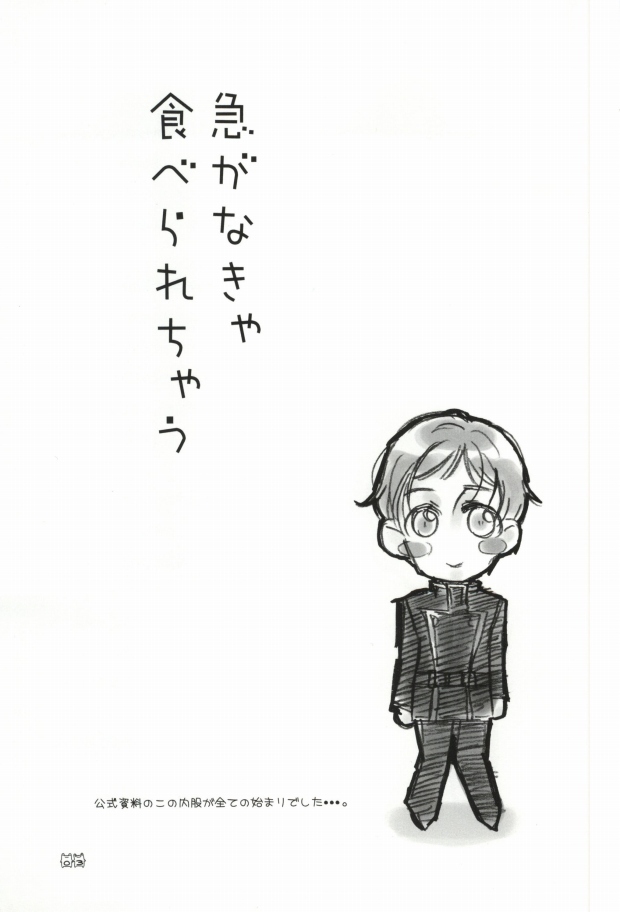 急がなきゃ
食べられちゃう
公式資料のこの内服が全ての始まりでした•••。
03